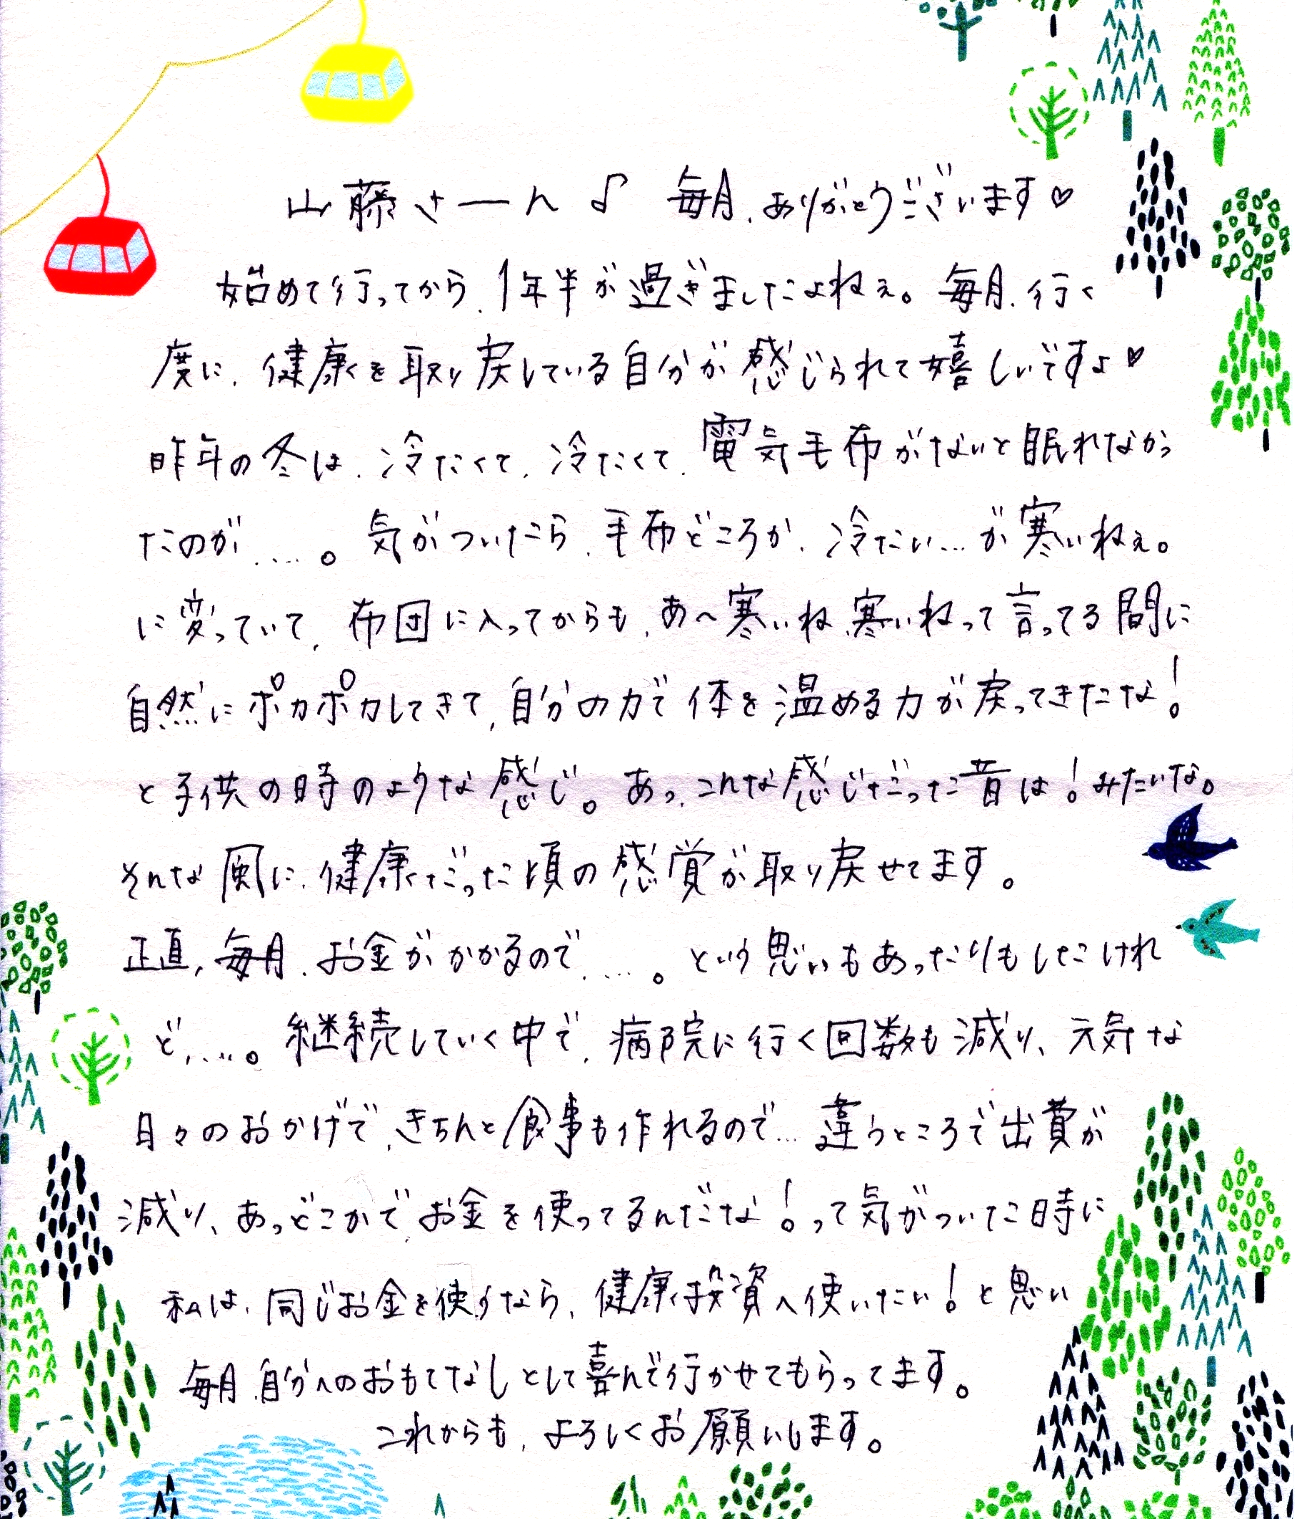 山藤さーん♪ 毎月、ありがとうございます♡
始めて行ってから、1年半が過ぎましたよねぇ。毎月、行く
度に、健康を取り戻している自分が感じられて嬉しいですよ♡
昨年の冬は、冷たくて、冷たくて、電気毛布がないと眠れなかっ
たのが....。気がついたら、毛布どころか、冷たい...が寒いねぇ。
に変っていて、布団に入ってからも、あ〜寒いね、寒いねって言ってる間に
自然にポカポカしてきて、自分の力で体を温める力が戻ってきたな!
と子供の時のような感じ。あっ、こんな感じだった昔は!みたいな。
そんな風に、健康だった頃の感覚が取り戻せてます。
正直、毎月、お金がかかるので、....。という思いもあったりもしたけれ
ど、....。継続していく中で、病院に行く回数も減り、元気な
日々のおかげで、きちんと食事も作れるので...違うところで出費が
減り、あっどこかでお金を使ってるんだな!って気がついた時に
私は、同じお金を使うなら、健康投資へ使いたい!と思い
毎月、自分へのおもてなしとして喜んで行かせてもらってます。
これからも、よろしくお願いします。